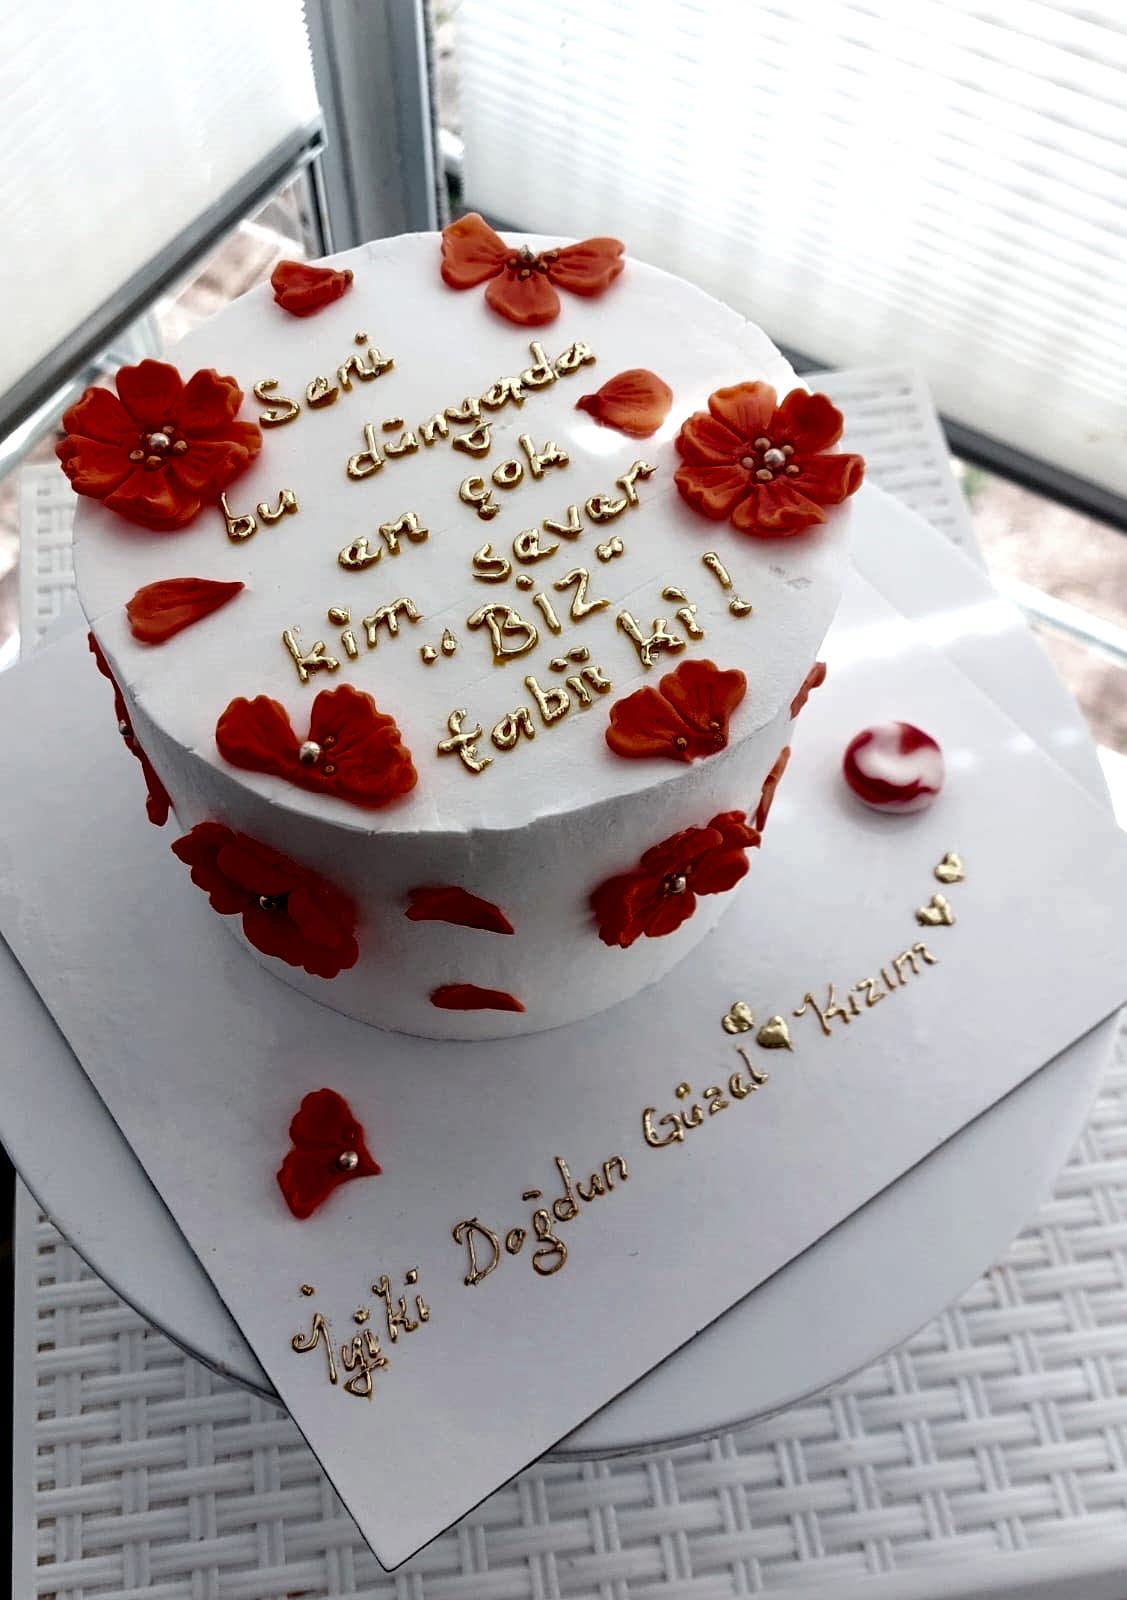 Seni
bu dünyada
en çok
kim sever
"BİZ"
tabii ki!
İyiki Doğdun Güzel Kızım